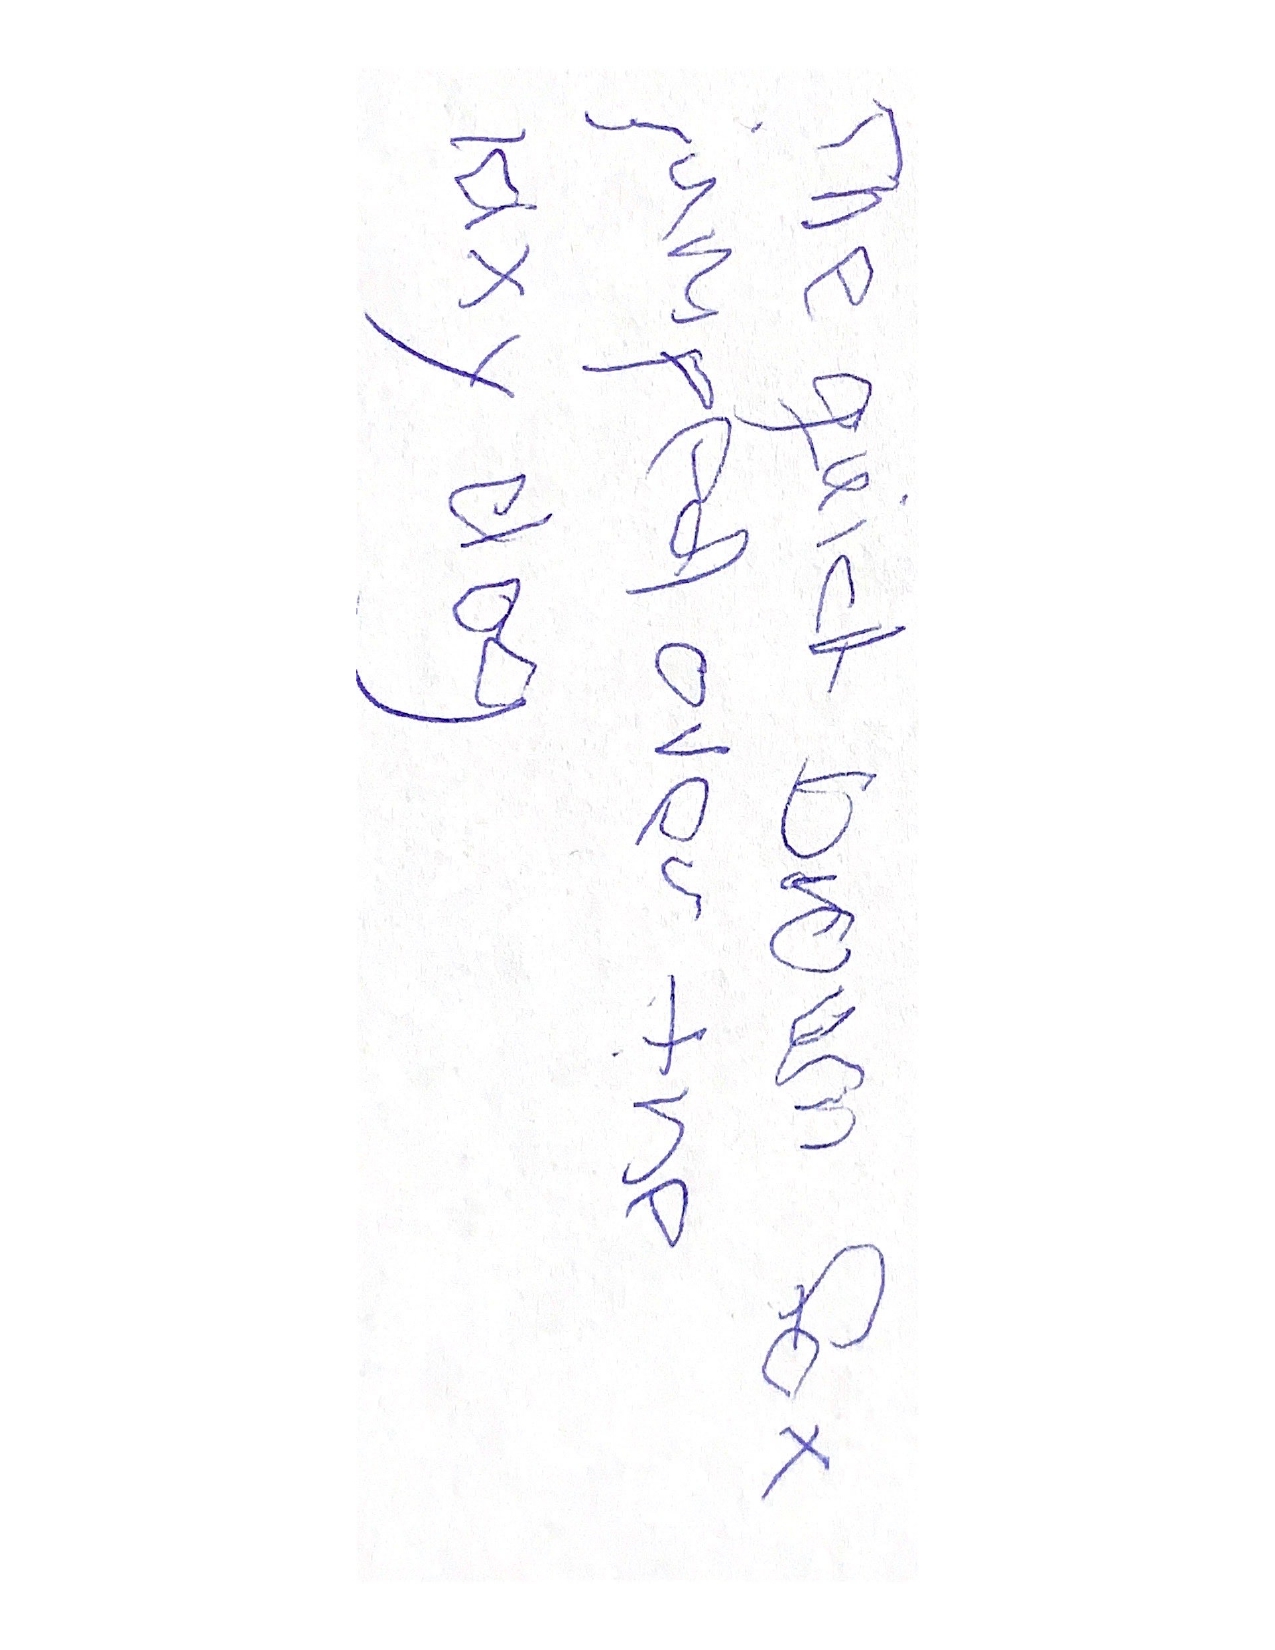 The quick brown fox
jumped over the
laxy dog